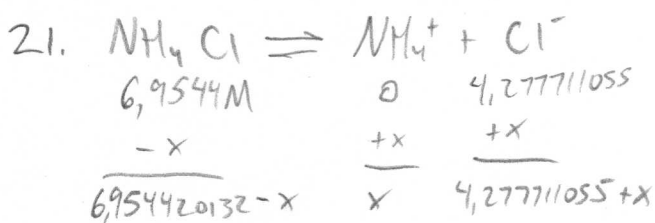 21. NH₄Cl ⇌ NH₄⁺ + Cl⁻
6,9544M 0 4,277711055
-x +x +x
6,954420132-x x 4,277711055+x